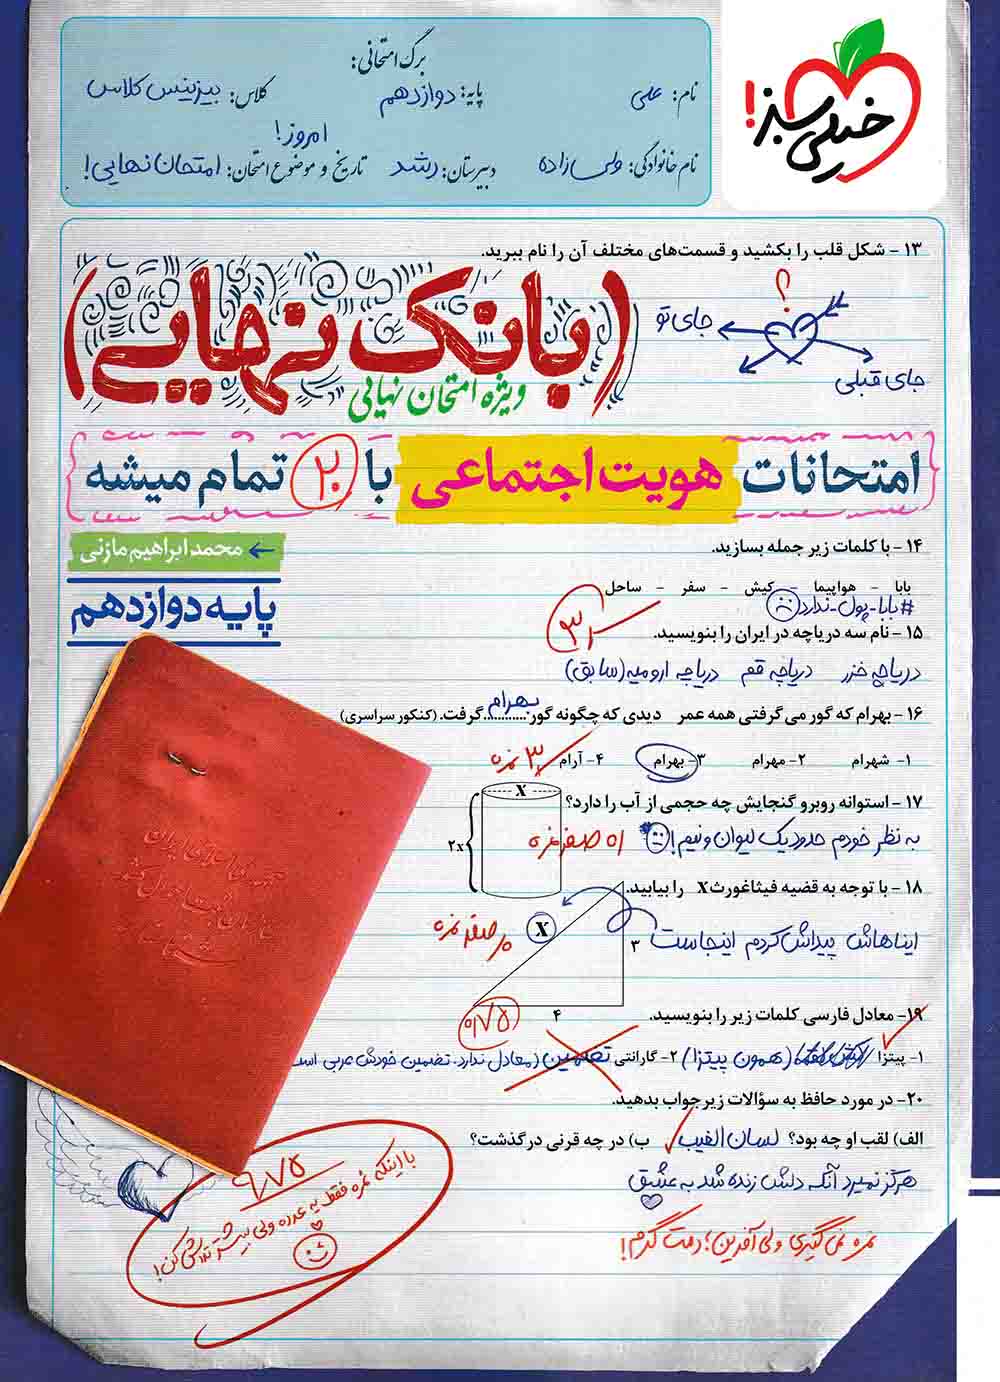 خیلی سبز!
برگ امتحانی:
نام: علی
پایه: دوازدهم
کلاس: بیزینس کلاس
نام خانوادگی: ولی‌زاده
دبیرستان: رشد
امروز!
تاریخ و موضوع امتحان: امتحان نهایی!
۱۳ - شکل قلب را بکشید و قسمت‌های مختلف آن را نام ببرید.
؟
جای تو
جای قبلی
(بانک نهایی)
ویژه امتحان نهایی
امتحانات هویت اجتماعی با ۲۰ تمام میشه
محمدابراهیم مازنی
پایه دوازدهم
۱۴ - با کلمات زیر جمله بسازید.
بابا - هواپیما - کیش - سفر - ساحل
#بابا-پول-ندارد
۱۵ - نام سه دریاچه در ایران را بنویسید.
دریاچه خزر دریاچه قم دریاچه ارومیه (سابق)
۱۶ - بهرام که گور می گرفتی همه عمر دیدی که چگونه گور ....بهرام.... گرفت. (کنکور سراسری)
۱- شهرام ۲- مهرام ۳- بهرام ۴- آرام
۳ نمره
۱۷ - استوانه روبرو گنجایش چه حجمی از آب را دارد؟
x
۲x
به نظر خودم حدود یک لیوان و نیم!
صفر نمره
۱۸ - با توجه به قضیه فیثاغورث x را بیابید.
x
۳
۴
ایناهاش پیداش کردم اینجاست
صفر نمره
۰/۷۵
۱۹- معادل فارسی کلمات زیر را بنویسید.
۱- پیتزا (همون پیتزا) ۲- گارانتی تضمین (معادل ندارد. تضمین خودش عربی است
۲۰- در مورد حافظ به سؤالات زیر جواب بدهید.
الف) لقب او چه بود؟ لسان الغیب ب) در چه قرنی درگذشت؟
هرگز نمیرد آنکه دلش زنده شد به عشق
نمره نمی‌گیری ولی آفرین؛ دمت گرم!
۹/۷۵
با اینکه نمره فقط یه عدده ولی بیشتر تلاش کن!